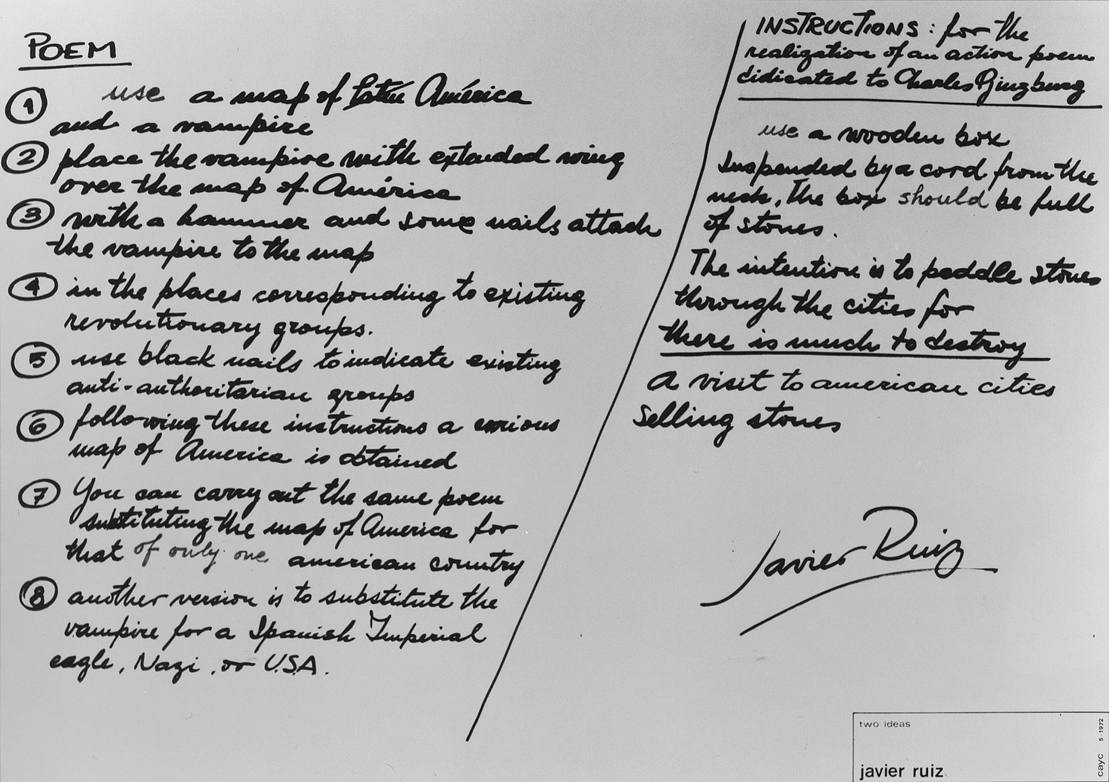 POEM
① use a map of Latin América
and a vampire
② place the vampire with extended wing
over the map of América
③ with a hammer and some nails attach
the vampire to the map
④ in the places corresponding to existing
revolutionary groups.
⑤ use black nails to indicate existing
anti-authoritarian groups
⑥ following these instructions a curious
map of America is obtained
⑦ You can carry out the same poem
substituting the map of America for
that of only one american country
⑧ another version is to substitute the
vampire for a Spanish Imperial
eagle, Nazi, or U.S.A.
INSTRUCTIONS: for the
realization of an action poem
didicated to Charles Ginzburg
use a wooden box
suspended by a cord from the
neck, the box should be full
of stones.
The intention is to peddle stones
through the cities for
there is much to destroy
a visit to american cities
selling stones
Javier Ruiz
two ideas
javier ruiz
cayc 5-1972